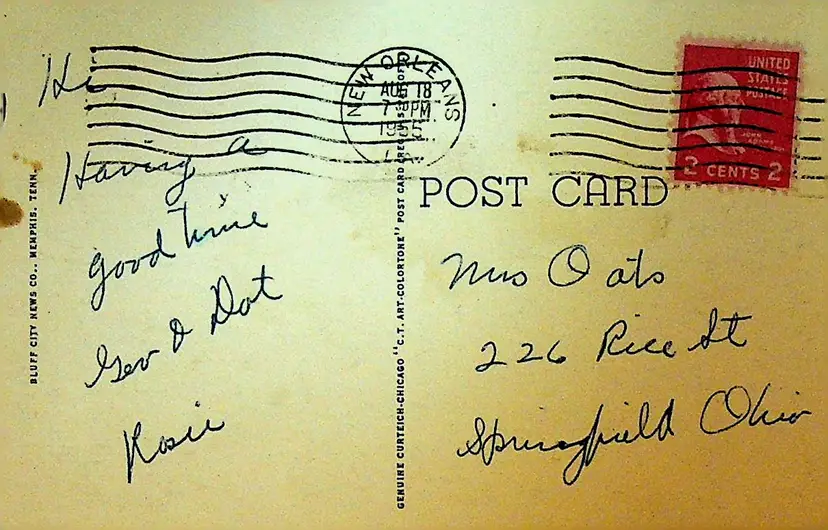 Hi
Having a
good time
Geo & Dot
Rosie
BLUFF CITY NEWS CO., MEMPHIS, TENN.
GENUINE CURTEICH-CHICAGO "C.T. ART-COLORTONE" POST CARD (REG. U.S. PAT. OFF.)
NEW ORLEANS
AUG 18
7 30 PM
1955
LA.
UNITED
STATES
POSTAGE
JOHN
ADAMS
2 CENTS 2
POST CARD
Mrs Oats
226 Rice St
Springfield Ohio